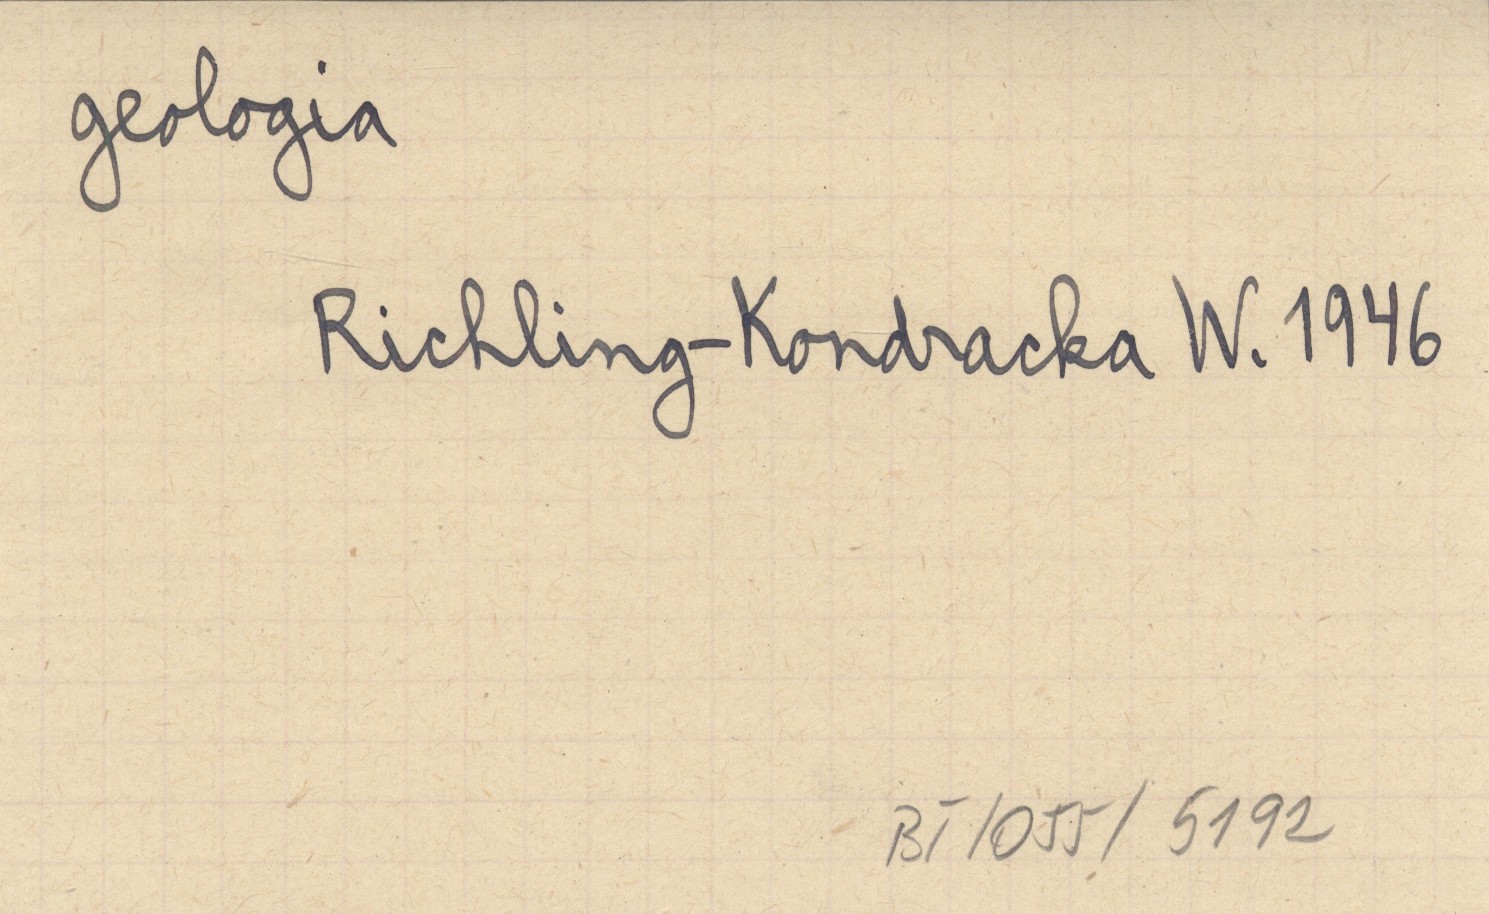 geologia
Richling-Kondracka W. 1946
BI/055/5192